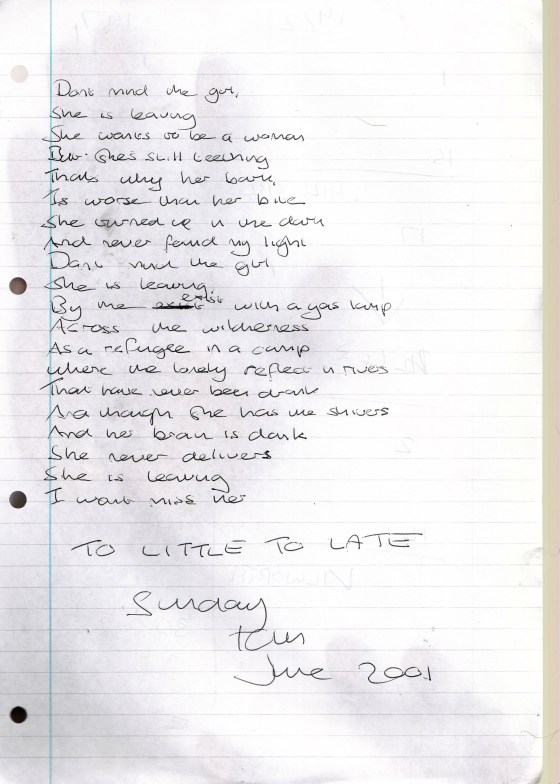 Dont mind the girl,
She is leaving
She wants to be a woman
But she's still teething
Thats why her bark,
Is worse than her bite
She turned up in the dark
And never found my light
Dont mind the girl
She is leaving.
By the exist with a gas lamp
Across the wilderness
As a refugee in a camp
Where the lonely reflect in rivers
That have never been drank
And though she has the shivers
And her brain is dank
She never delivers
She is leaving
I wont miss her
TO LITTLE TO LATE
Sunday
June 2001